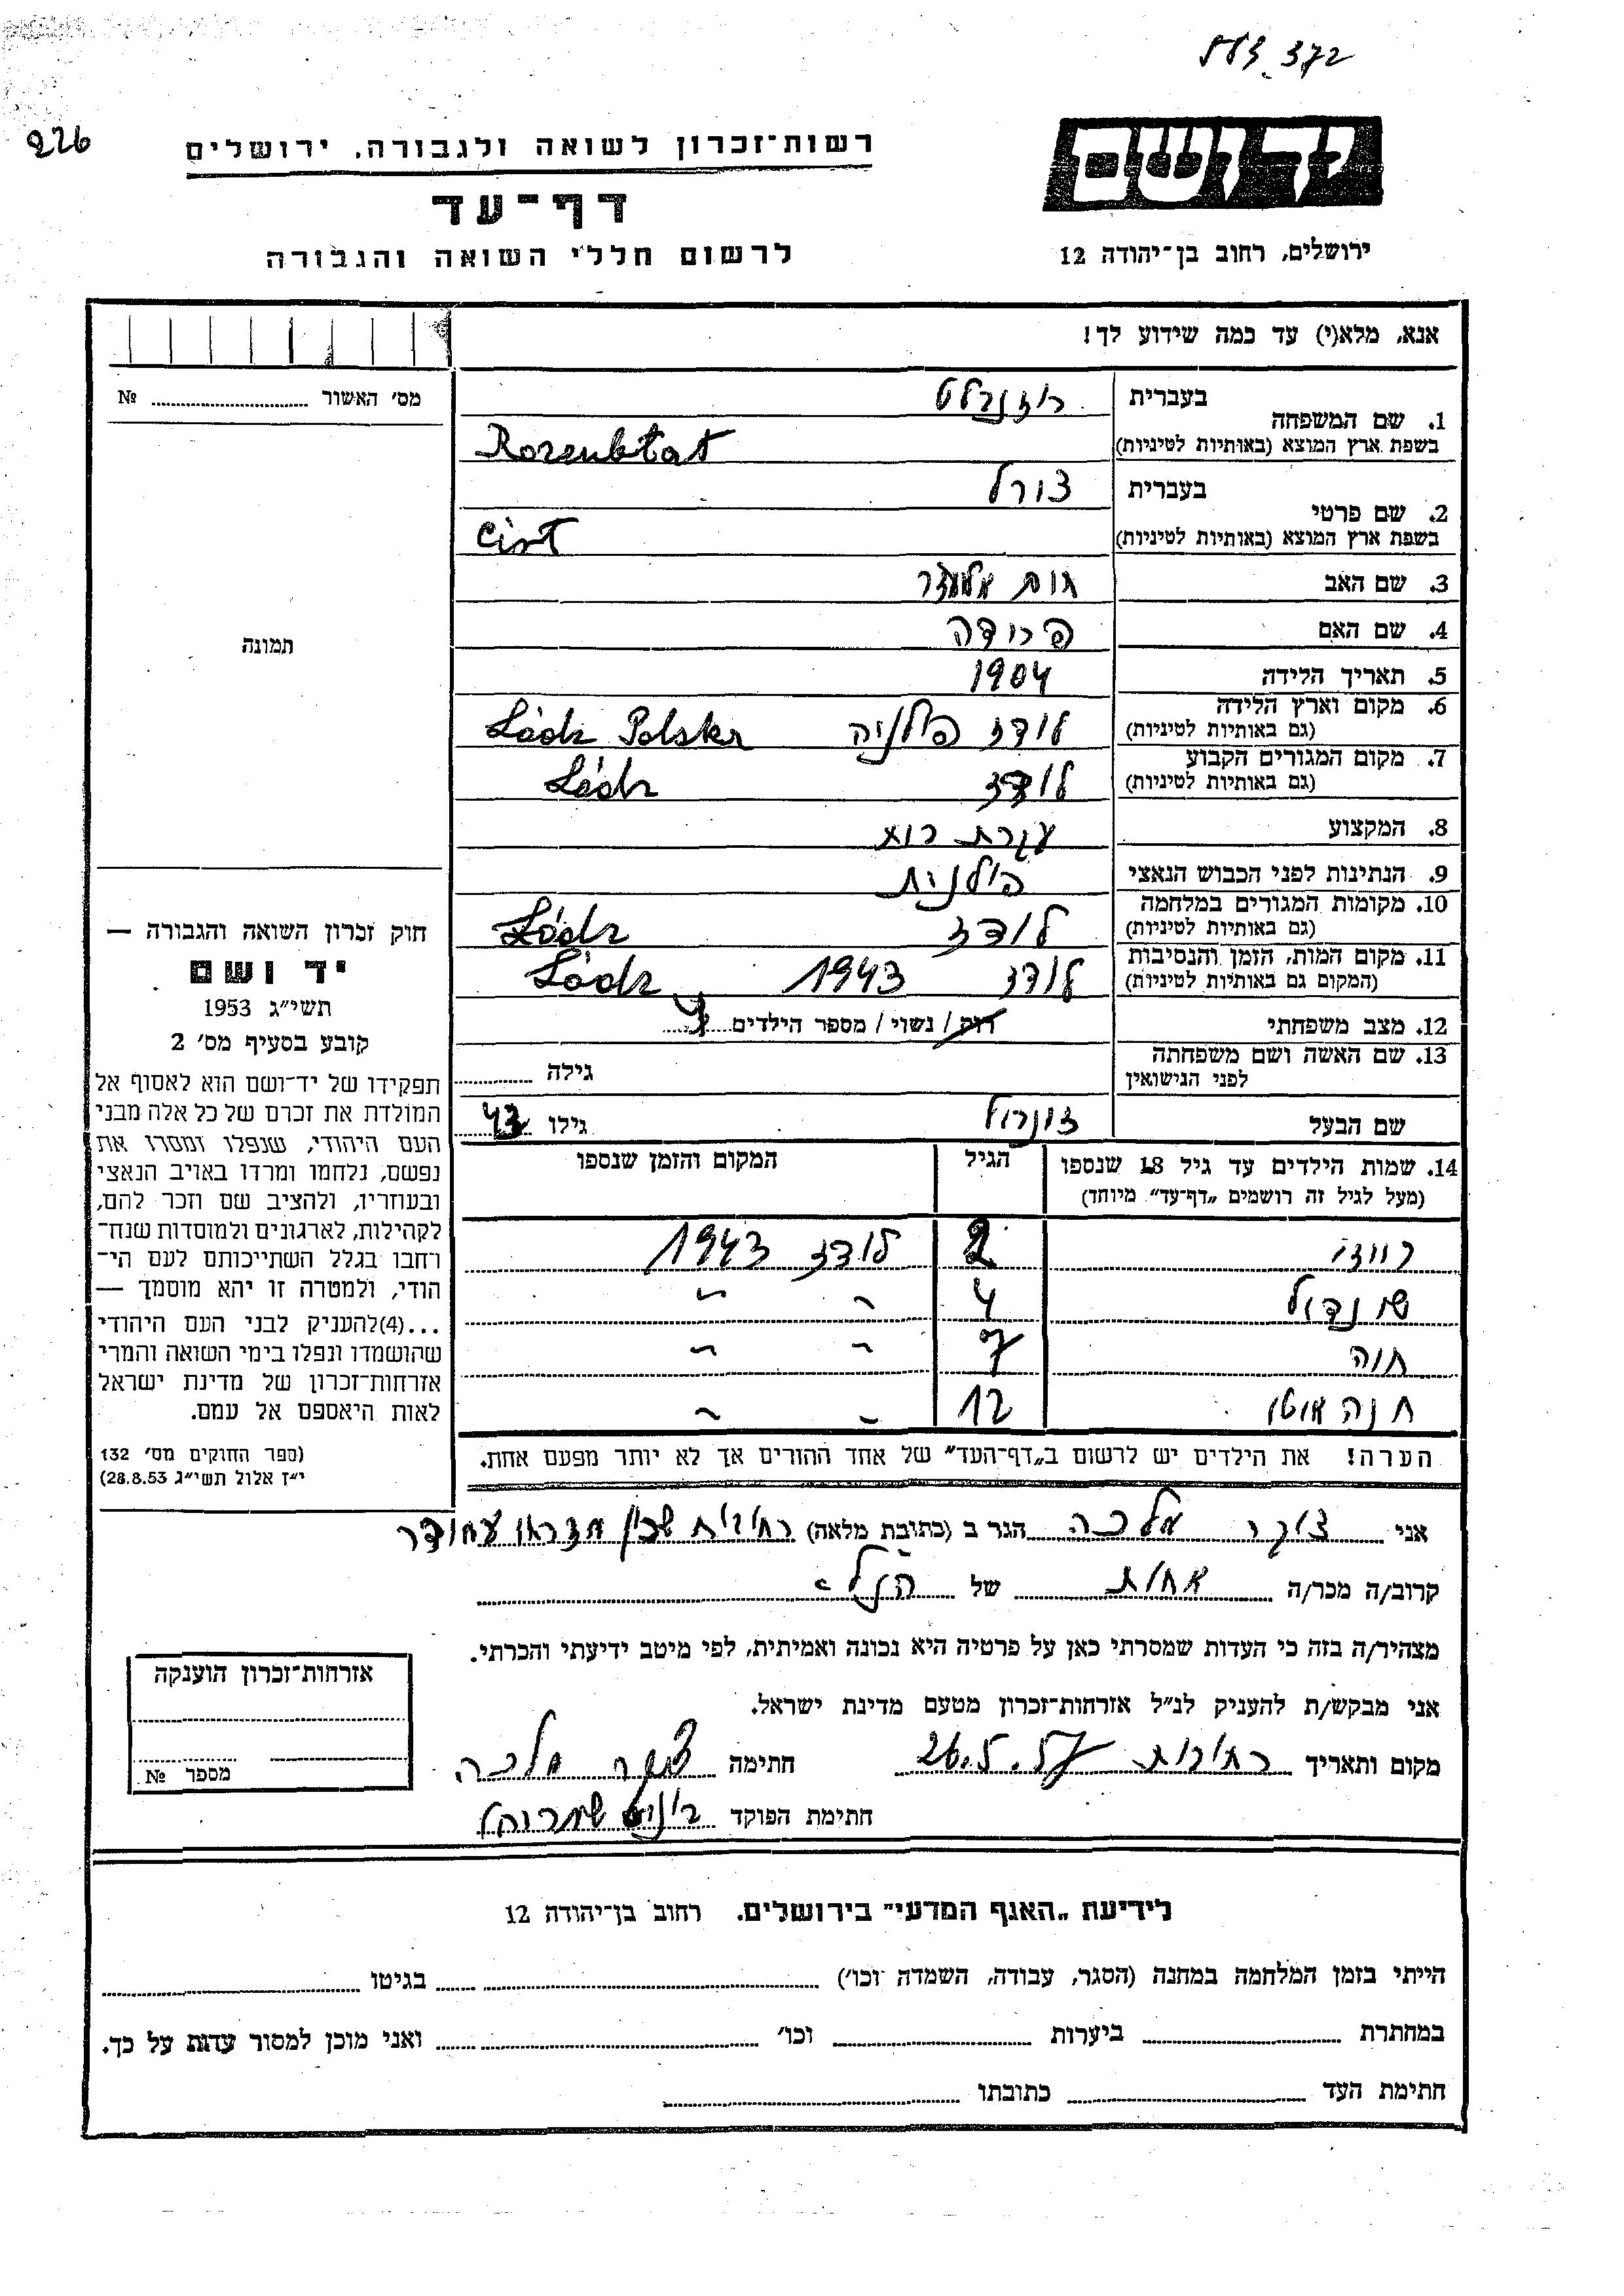 372
226
יד ושם
רשות־זכרון לשואה ולגבורה, ירושלים
דף־עד
ירושלים, רחוב בן־יהודה 12
לרשום חללי השואה והגבורה
אנא, מלא(י) עד כמה שידוע לך!
מס׳ האשור № 
1. שם המשפחה בעברית רוזנבלט
בשפת ארץ המוצא (באותיות לטיניות) Rozenblat
2. שם פרטי בעברית צורל
בשפת ארץ המוצא (באותיות לטיניות)
3. שם האב
4. שם האם פרודה
5. תאריך הלידה 1904
6. מקום וארץ הלידה (גם באותיות לטיניות) לודז פולניה Łódz Polska
7. מקום המגורים הקבוע (גם באותיות לטיניות) לודז Łódz
8. המקצוע עקרת בית
9. הנתינות לפני הכבוש הנאצי פולנית
10. מקומות המגורים במלחמה (גם באותיות לטיניות) לודז Łódz
11. מקום המות, הזמן והנסיבות (המקום גם באותיות לטיניות) לודז 1943 Łódz
12. מצב משפחתי רוק / נשוי / מספר הילדים 4
13. שם האשה ושם משפחתה לפני הנישואין גילה
שם הבעל גילו 43
14. שמות הילדים עד גיל 18 שנספו הגיל המקום והזמן שנספו
(מעל לגיל זה רושמים „דף־עד״ מיוחד)
2 לודז 1943
שינדיל 4 ״ ״
חוה 7 ״ ״
חנה 12 ״ ״
הערה! את הילדים יש לרשום ב„דף־העד״ של אחד ההורים אך לא יותר מפעם אחת.
תמונה
חוק זכרון השואה והגבורה —
יד ושם
תשי״ג 1953
קובע בסעיף מס׳ 2
תפקידו של יד־ושם הוא לאסוף אל
המולדת את זכרם של כל אלה מבני
העם היהודי, שנפלו ומסרו את
נפשם, נלחמו ומרדו באויב הנאצי
ובעוזריו, ולהציב שם וזכר להם,
לקהילות, לארגונים ולמוסדות שנח־
רחבו בגלל השתייכותם לעם הי־
הודי, ולמטרה זו יהא מוסמך —
...(4)להעניק לבני העם היהודי
שהושמדו ונפלו בימי השואה והמרי
אזרחות־זכרון של מדינת ישראל
לאות היאספם אל עמם.
(ספר החוקים מס׳ 132
י״ז אלול תשי״ג 28.8.53)
אני צוקר מלכה הגר ב (כתובת מלאה) רחובות שכון
קרוב/ה מכר/ה אחות של הנ״ל
מצהיר/ה בזה כי העדות שמסרתי כאן על פרטיה היא נכונה ואמיתית, לפי מיטב ידיעתי והכרתי.
אני מבקש/ת להעניק לנ״ל אזרחות־זכרון מטעם מדינת ישראל.
מקום ותאריך רחובות 26.5.57 חתימה צוקר מלכה
חתימת הפוקד
אזרחות־זכרון הוענקה
מספר №
לידיעת „האגף המדעי״ בירושלים. רחוב בן־יהודה 12
הייתי בזמן המלחמה במחנה (הסגר, עבודה, השמדה וכו׳) בגיטו
במחתרת ביערות וכו׳ ואני מוכן למסור עדות על כך.
חתימת העד כתובתו